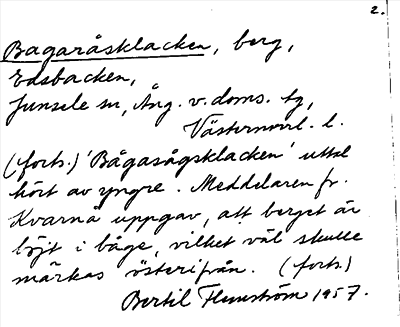 2.
Bagaråsklacken, berg,
Edsbacken,
Junsele sn, Ång. v. doms. tg,
Västernorrl. l.
(forts.) 'Bågasågsklacken' uttal
hört av yngre. Meddelaren fr.
Kvarnå uppgav, att berget är
böjt i båge, vilket väl skulle
märkas österifrån. (forts.)
Bertil Flemström 1957.